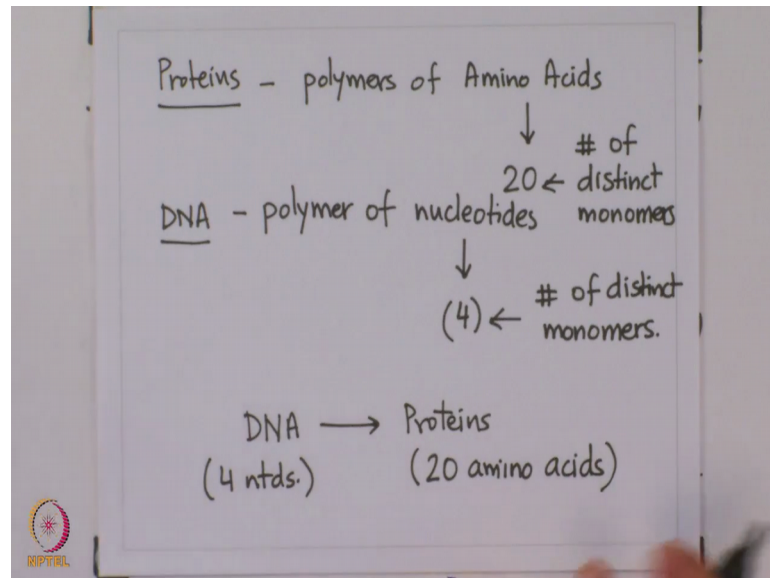 Proteins - polymers of Amino Acids
↓
20 ← # of distinct monomers
DNA - polymer of nucleotides
↓
(4) ← # of distinct monomers.
DNA → Proteins
(4 ntds.) (20 amino acids)
NPTEL